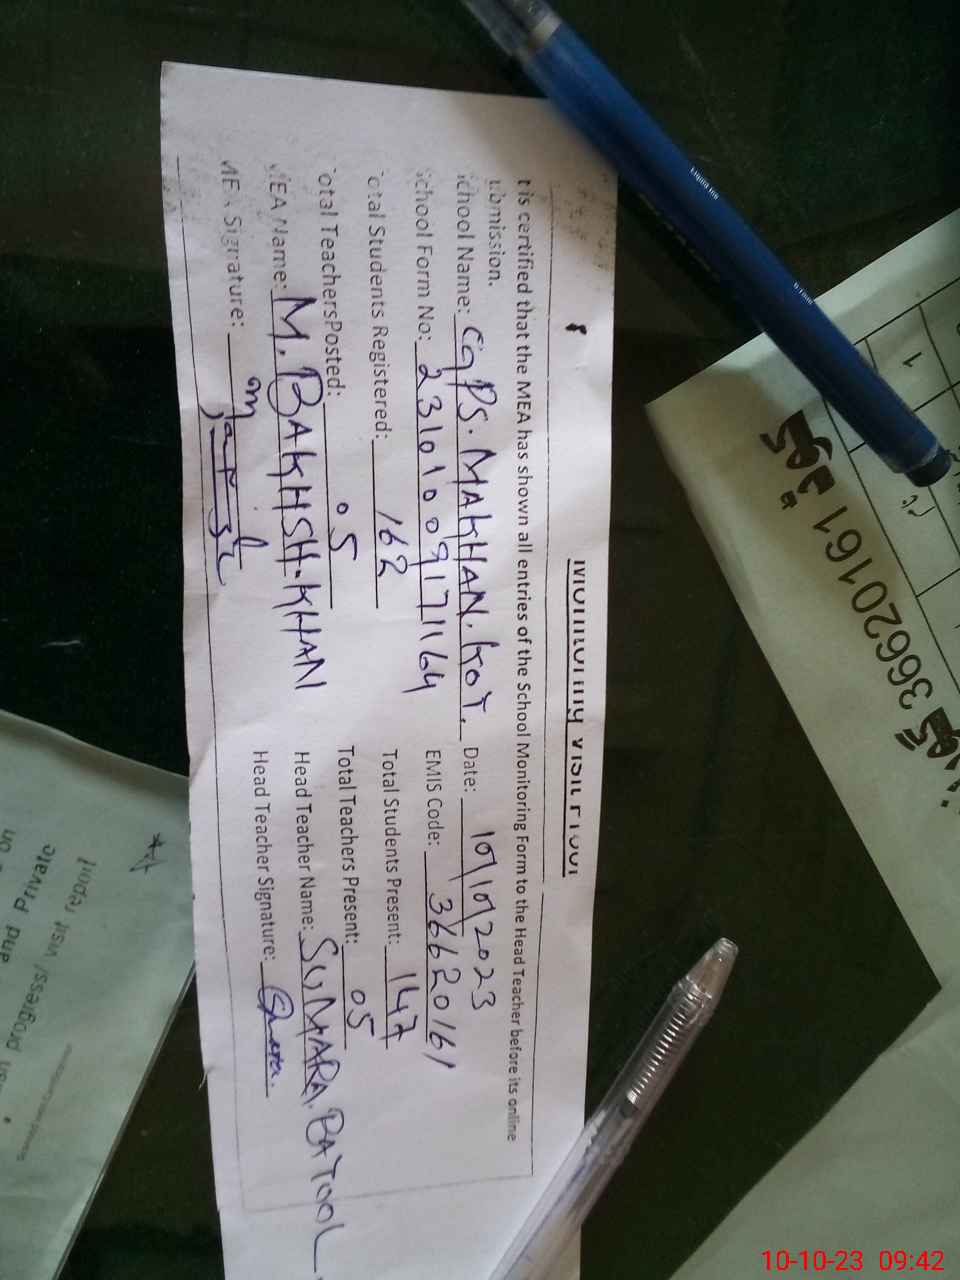 Monitoring Visit Proof
t is certified that the MEA has shown all entries of the School Monitoring Form to the Head Teacher before its online
ubmission.
School Name: CGPS. MAKHAN. KOT. Date: 10/10/2023
School Form No: 23101009171164 EMIS Code: 36620161
Total Students Registered: 162 Total Students Present: 147
Total TeachersPosted: 05 Total Teachers Present: 05
MEA Name: M. BAKHSH. KHAN Head Teacher Name: SUMARA. BATOOL
MEA Signature: Head Teacher Signature:
36620161
1
Liquid Ink
visit record
progress/
elevant
and
10-10-23 09:42